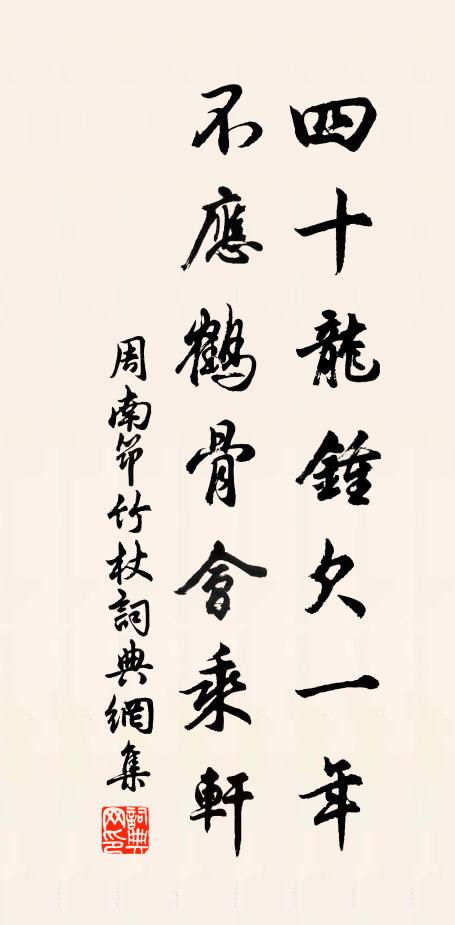 四十龍鍾欠一年
不應鶴骨會乘軒
周南笻竹杖詞典網集
詞典网印